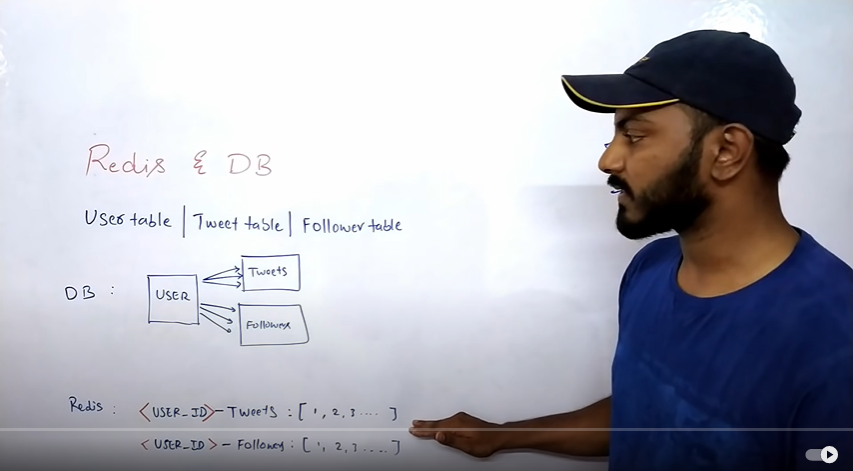 Redis & DB
User table | Tweet table | Follower table
DB :
USER
Tweets
Follower
Redis : <USER_ID>-Tweets : [ 1, 2, 3 .... ]
<USER_ID> - Follower : [ 1, 2, 3 .... ]